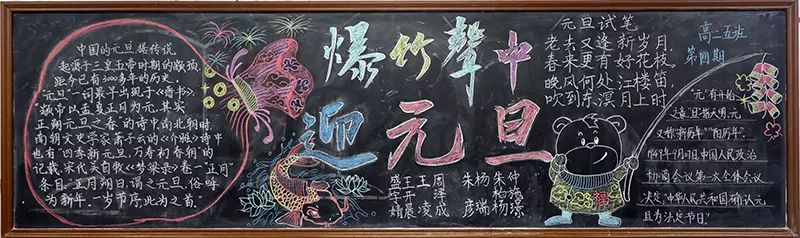 中国的元旦据传说
起源于三皇五帝时期的颛顼,
距今已有3000多年的历史。
"元旦"一词最早出现于《晋书》:
"颛帝以孟夏正月为元,其实
正朔元旦之春"的诗中。南北朝时,
南朝文史学家萧子云的《介雅》诗中
也有"四季新元旦,万寿初春朝"的
记载。宋代吴自牧《梦粱录》卷一"正月"
条目:"正月朔日,谓之元旦,俗呼
为新年。一岁节序,此为之首。"
爆竹聲中
迎元旦
盛王王周
宇开 泽
婧晨凌成
朱杨朱仲
彦瑞杨璟
元旦试笔
老去又逢新岁月,
春来更有好花枝。
晚风何处江楼笛,
吹到东溟月上时
高二五班
第四期
福
"元"有开始
之意,"旦"指天明,元
又称"新历年""阳历年"。
中国人民政治
协商会议第一次全体会议
决定"中华人民共和国
且为法定节日。"